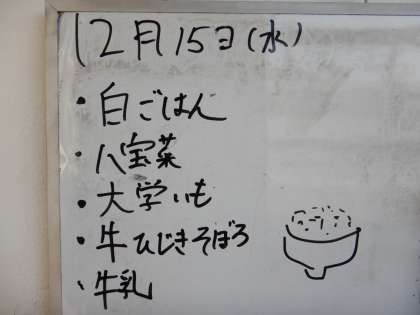 12月15日(水)
・白ごはん
・八宝菜
・大学いも
・牛ひじきそぼろ
・牛乳